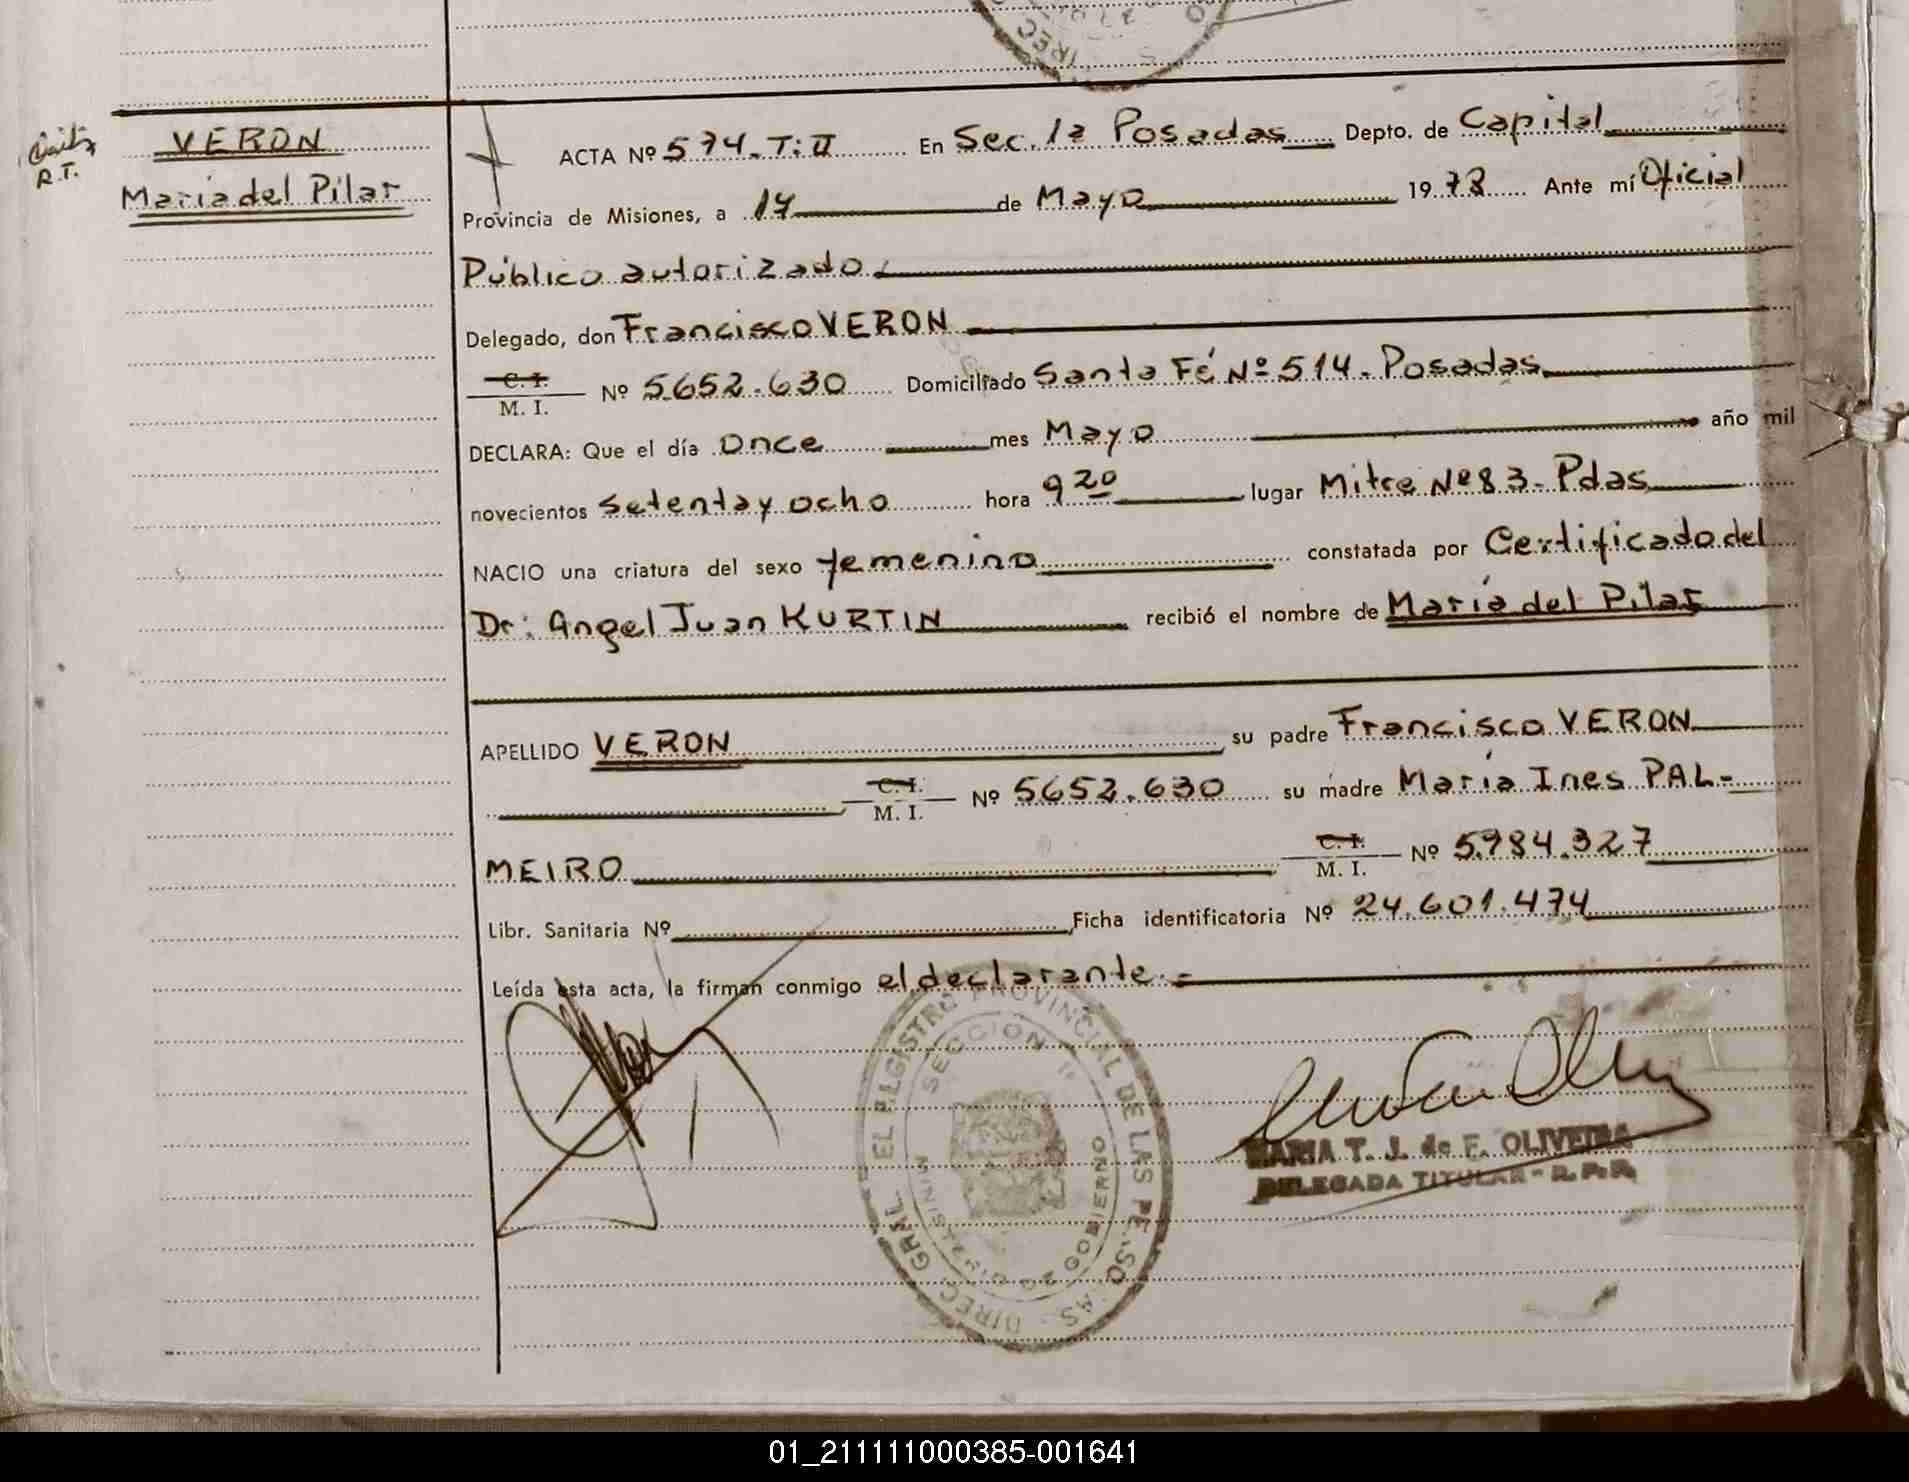 VERON
María del Pilar
R.T.
ACTA Nº 574. T: II En Sec. 1ª Posadas Depto. de Capital
Provincia de Misiones, a 17 de Mayo 1978 Ante mí Oficial
Público autorizado.
Delegado, don Francisco VERON
C. I.
M. I. Nº 5652.630 Domiciliado Santa Fé Nº 514. Posadas.
DECLARA: Que el día Once mes Mayo año mil
novecientos setenta y ocho hora 9 20 lugar Mitre Nº 83 - Pdas
NACIO una criatura del sexo femenino constatada por Certificado del
Dr: Angel Juan KURTIN recibió el nombre de María del Pilar
APELLIDO VERON su padre Francisco VERON
C. I.
M. I. Nº 5652.630 su madre María Ines PAL-
MEIRO C. I.
M. I. Nº 5.984.327
Libr. Sanitaria Nº Ficha identificatoria Nº 24.601.474
Leída esta acta, la firman conmigo el declarante.=
DIREC. GRAL. EL REGISTRO PROVINCIAL DE LAS PERSONAS
SECCION 1ª
MINISTERIO DE GOBIERNO
MARIA T. J. de F. OLIVEIRA
DELEGADA TITULAR - R. P. P.
01_211111000385-001641